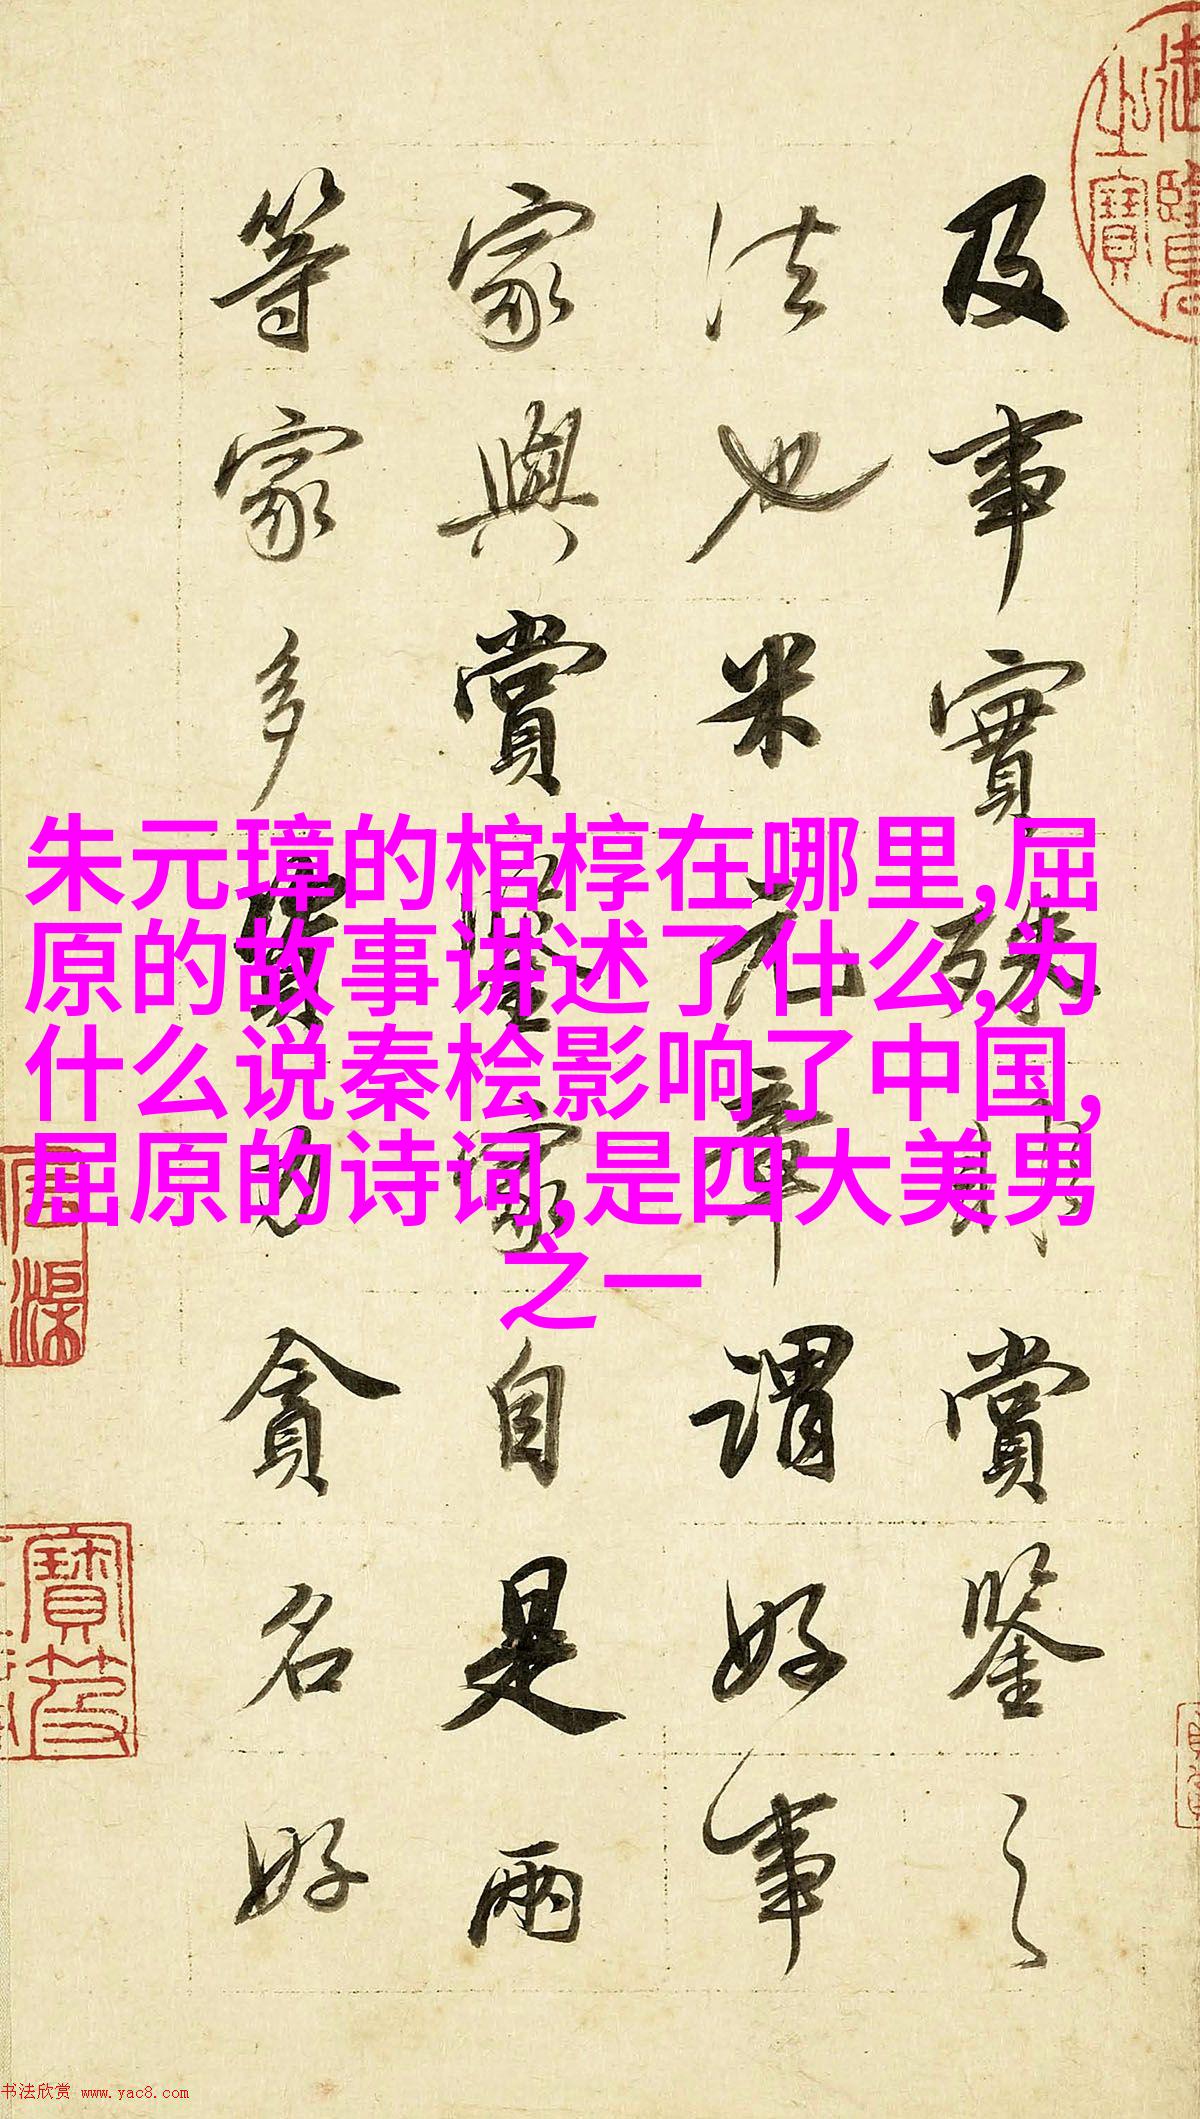 及事實殊貺賞鑒之
法也米元章謂好事
家與賞鑒家自是兩
等家多資力貪名好
朱元璋的棺椁在哪里,屈
原的故事讲述了什么,为
什么说秦桧影响了中国,
屈原的诗词,是四大美男
之一
書法欣赏 www.yac8.com